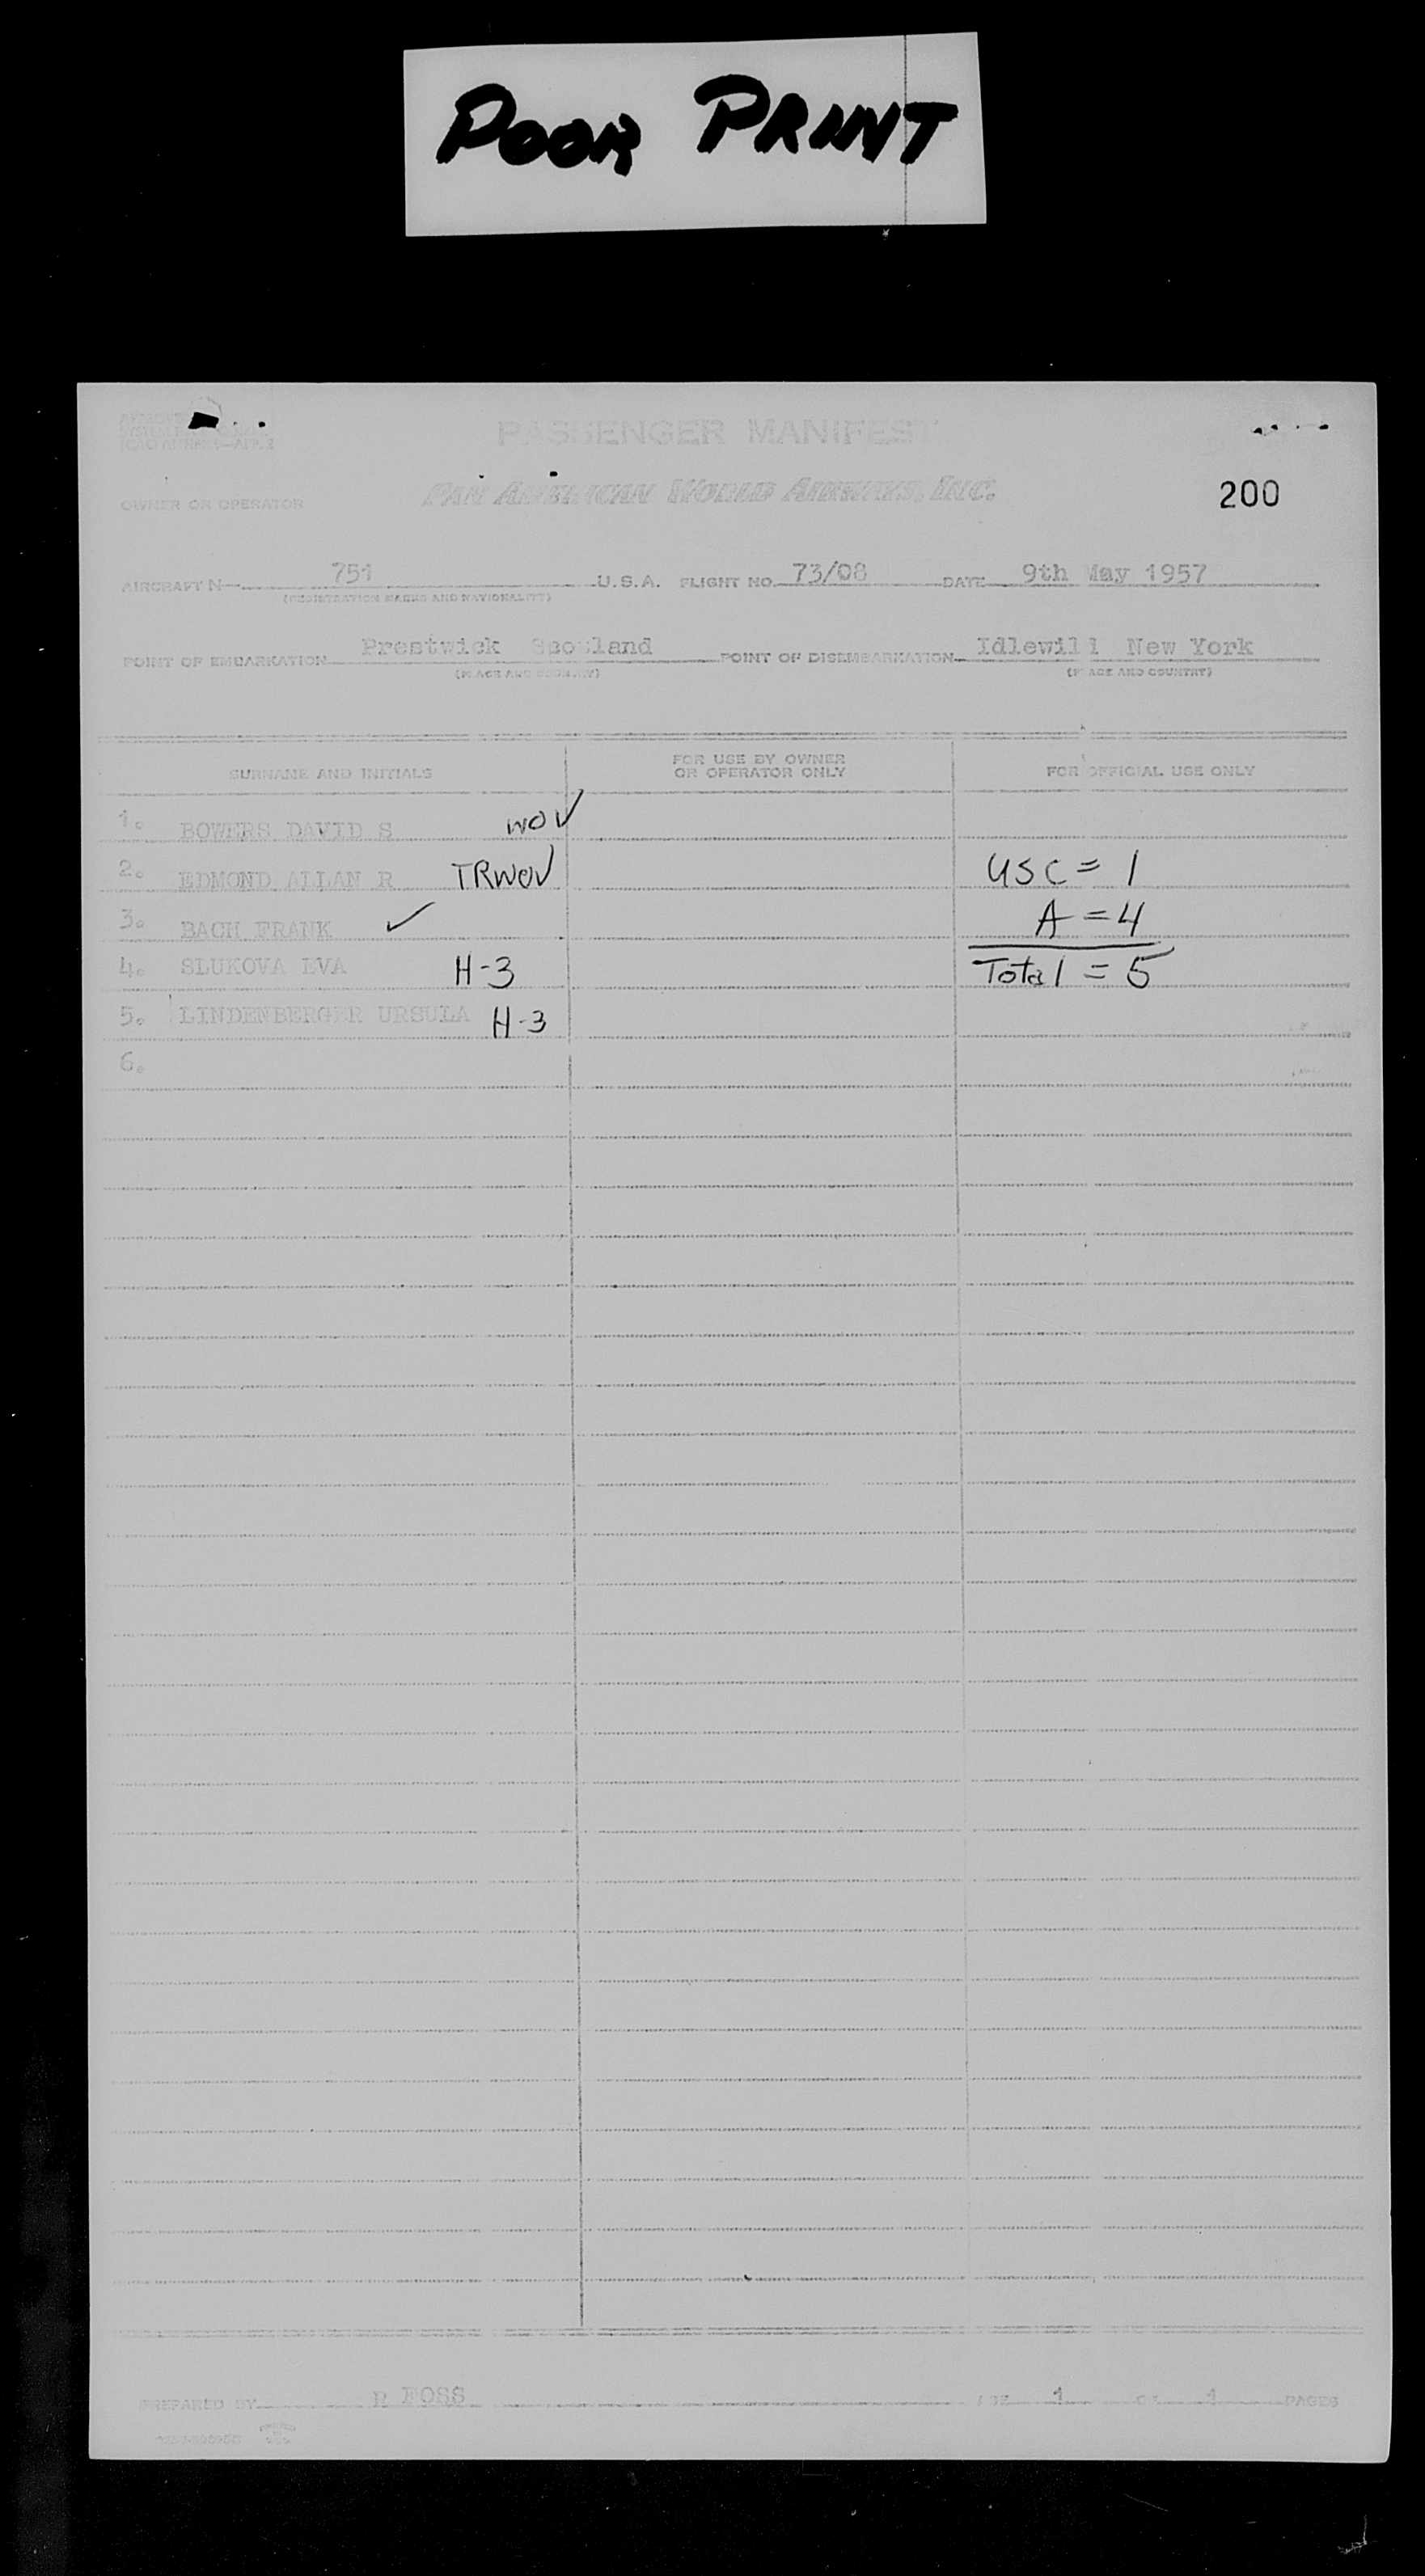 POOR PRINT
PASSENGER MANIFEST
OWNER OR OPERATOR PAN AMERICAN WORLD AIRWAYS, INC. 200
AIRCRAFT N 751 U.S.A. FLIGHT NO. 73/08 DATE 9th May 1957
(REGISTRATION MARKS AND NATIONALITY)
POINT OF EMBARKATION Prestwick Scotland POINT OF DISEMBARKATION Idlewill New York
(PLACE AND COUNTRY) (PLACE AND COUNTRY)
SURNAME AND INITIALS FOR USE BY OWNER OR OPERATOR ONLY FOR OFFICIAL USE ONLY
1. BOWERS DAVID S WO✓
2. EDMOND ALLAN R TRWO✓ USC = 1
3. BACH FRANK ✓ A = 4
4. SLUKOVA EVA H-3 Total = 5
5. LINDENBERGER URSULA H-3
6.
PREPARED BY FOSS 1 OF 1 PAGES